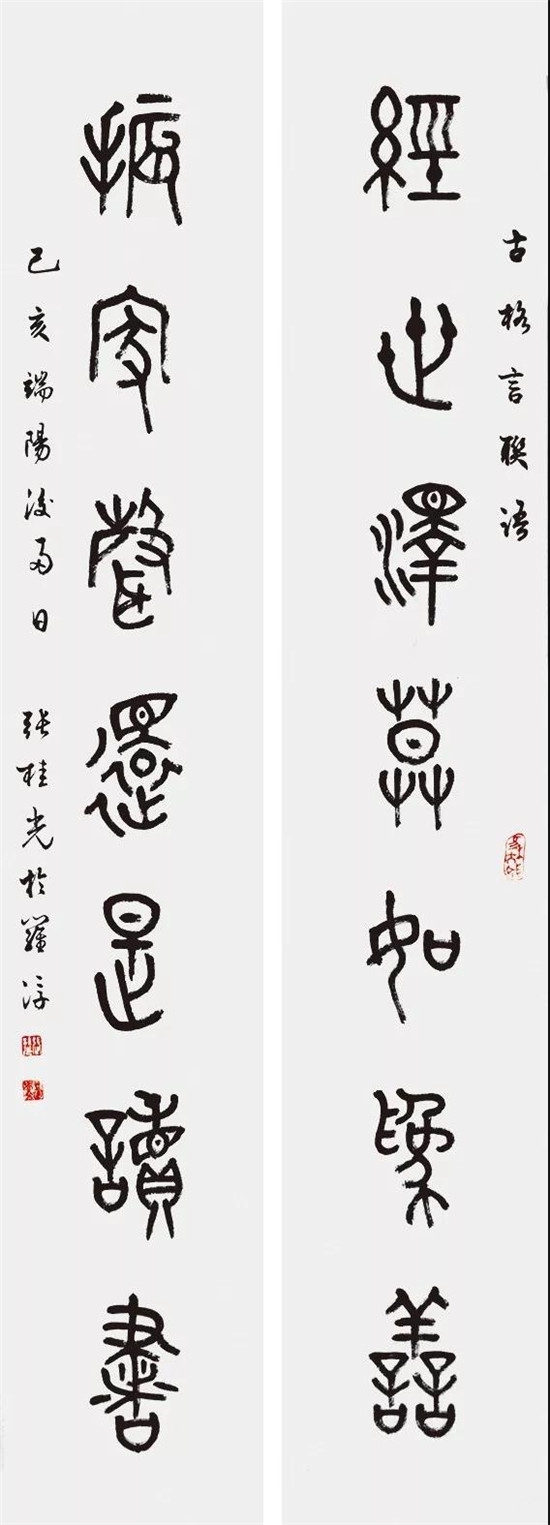 古格言聯語
經世澤莫如為善
振家聲還是讀書
己亥端陽後日 張桂光於羅浮